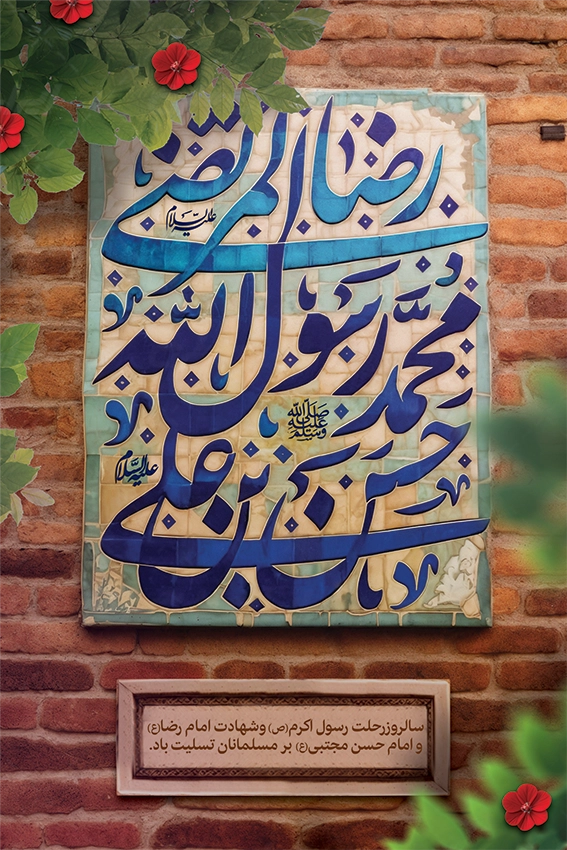 رضا المرتضی
علیه السلام
محمد رسول الله
صلی الله علیه وسلم
حسن بن علی
علیه السلام
سالروز رحلت رسول اکرم(ص) و شهادت امام رضا(ع)
و امام حسن مجتبی(ع) بر مسلمانان تسلیت باد.